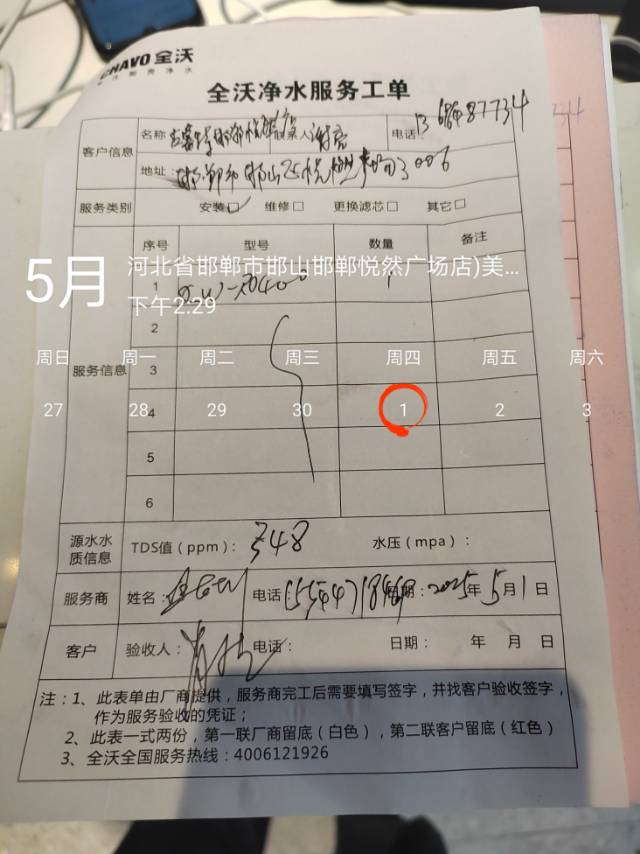 CHAVO 全沃
全沃净水服务工单
客户信息
名称
联系人
电话
地址:
服务类别 安装☑ 维修☐ 更换滤芯☐ 其它☐
服务信息
序号 型号 数量 备注
1 1
2
3
4
5
6
5月
河北省邯郸市邯山邯郸悦然广场店)美...
下午2:29
周日 周一 周二 周三 周四 周五 周六
27 28 29 30 1 2 3
源水水质信息 TDS值(ppm): 348 水压(mpa):
服务商 姓名: 电话 日期: 2025年5月1日
客户 验收人: 电话: 日期: 年 月 日
注:1、此表单由厂商提供,服务商完工后需要填写签字,并找客户验收签字,
作为服务验收的凭证;
2、此表一式两份,第一联厂商留底(白色),第二联客户留底(红色)
3、全沃全国服务热线:4006121926